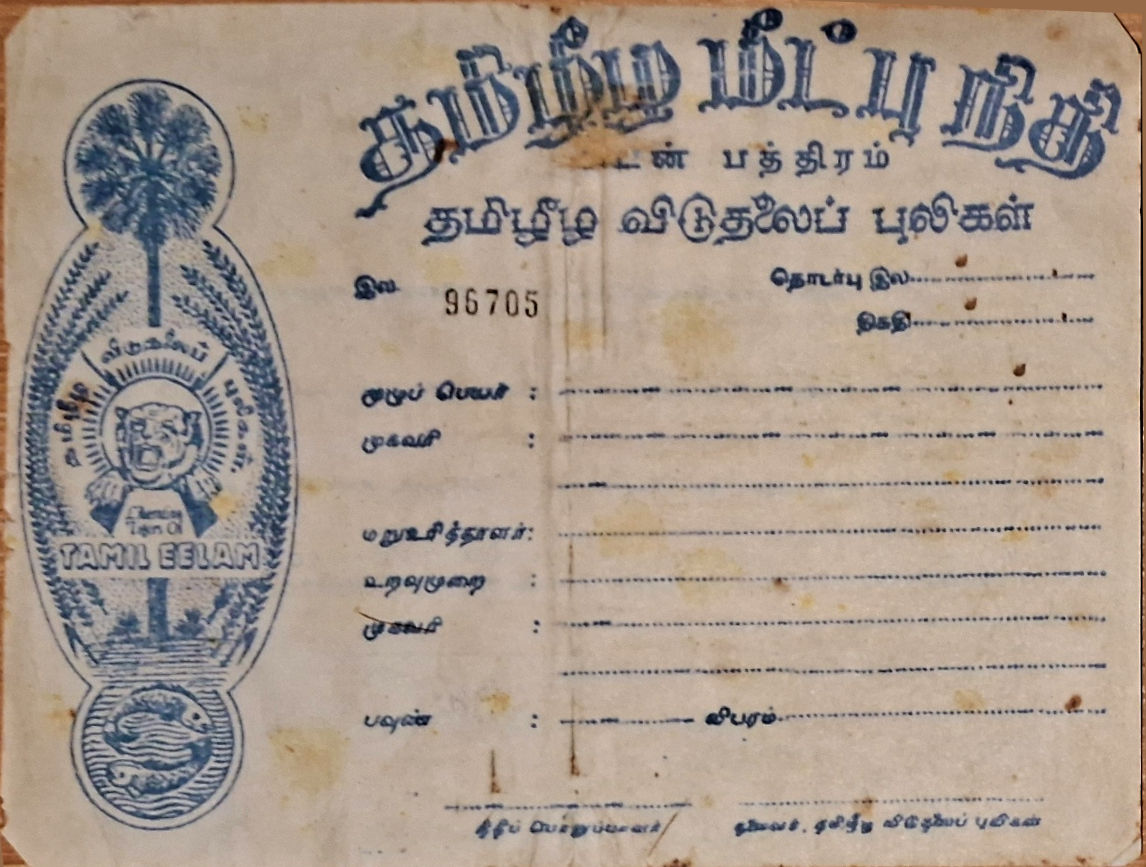 தமிழீழ மீட்பு நிதி
பத்திரம்
தமிழீழ விடுதலைப் புலிகள்
இல 96705
தொடர்பு இல
திகதி
முழுப் பெயர் :
முகவரி :
மறுஉரித்தாளர் :
உறவுமுறை :
முகவரி :
பவுண் : விபரம்
நிதிப் பொறுப்பாளர்
தலைவர், தமிழீழ விடுதலைப் புலிகள்
தமிழீழ விடுதலைப் புலிகள்.
Liberation
Tigers Of
TAMIL EELAM